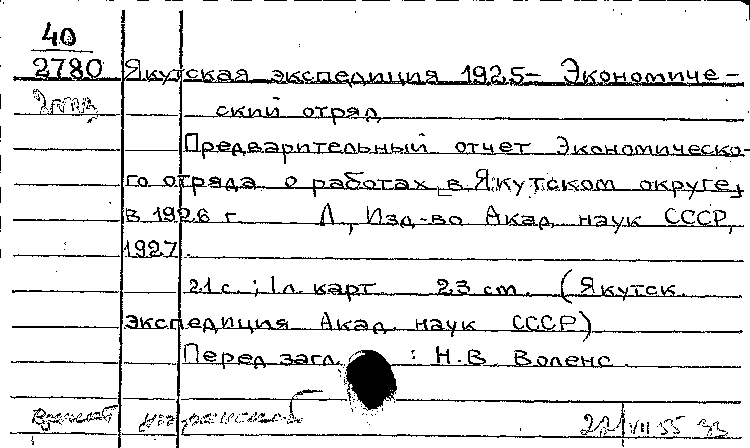 40
2780 Якутская экспедиция 1925- Экономиче-
ский отряд
Предварительный отчет Экономическо-
го отряда о работах [в Якутском округе]
в 1926 г. Л., Изд-во Акад. наук СССР,
1927.
21 с.; 1 л. карт. 23 cm. (Якутск.
экспедиция Акад. наук СССР)
Перед загл. : Н.В. Воленс
VII 55